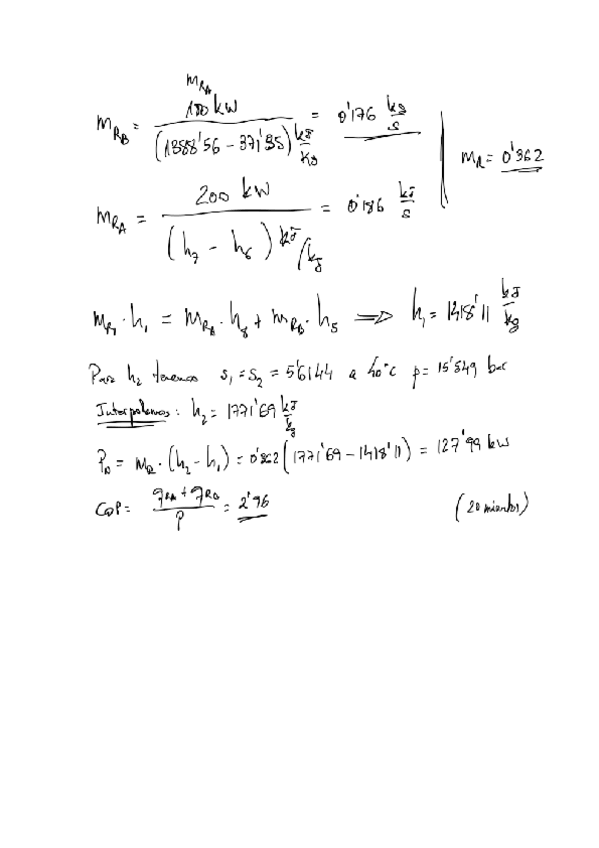 m_RA
m_RB = 180 kW / (1388'56 - 371'35) kJ/kg = 0'176 kg/s
m_R = 0'362
m_RA = 200 kW / (h_7 - h_6) kJ/kg = 0'186 kJ/s
m_R1 · h_1 = m_RA · h_8 + m_RB · h_5 ⟹ h_1 = 1418'11 kJ/kg
Para h_2 tenemos s_1 = s_2 = 5'6144 a 40°C p = 15'549 bar
Interpolemos: h_2 = 1771'69 kJ/kg
P_A = m_R · (h_2 - h_1) = 0'362 (1771'69 - 1418'11) = 127'99 kW
COP = (q_RA + q_RB) / P = 2'96
(20 mientos)